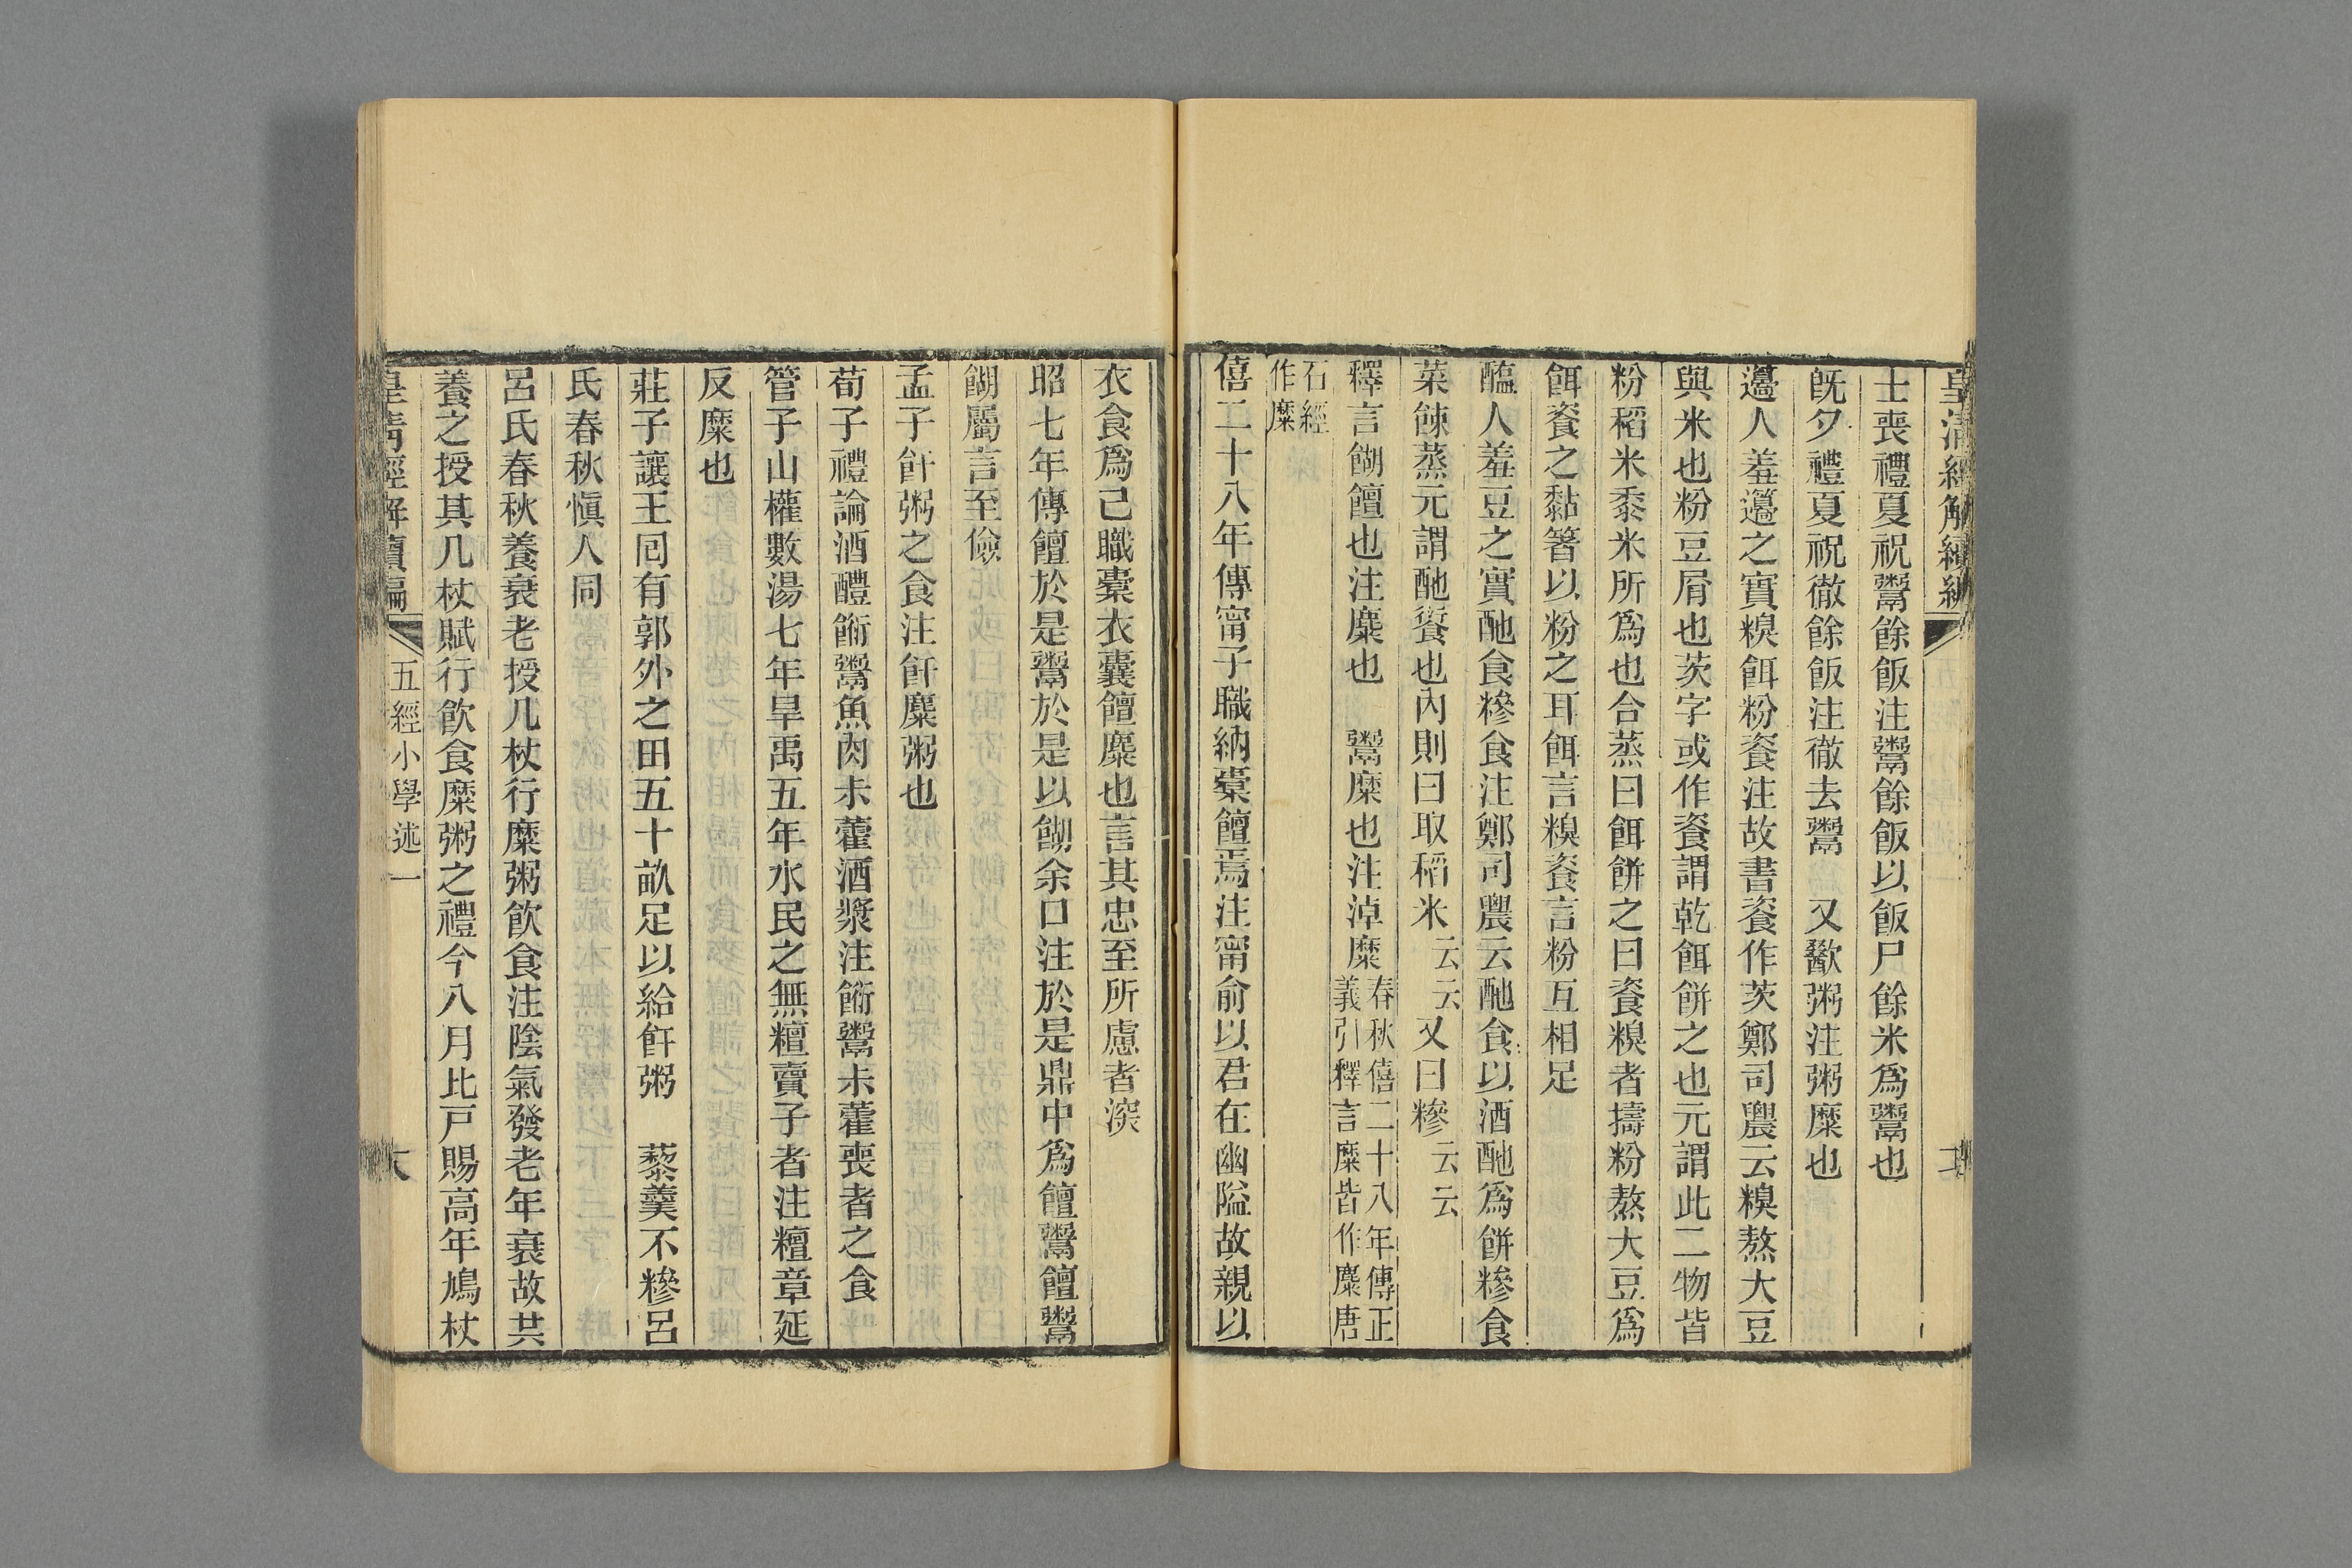 皇清經解續編
士喪禮夏祝鬻餘飯注鬻餘飯以飯尸餘米爲鬻也
旣夕禮夏祝徹餘飯注徹去鬻　又歠粥注粥糜也
籩人羞籩之實糗餌粉餈注故書餈作茨鄭司農云糗熬大豆
與米也粉豆屑也茨字或作餈謂乾餌餅之也元謂此二物皆
粉稻米黍米所爲也合蒸曰餌餅之曰餈糗者擣粉熬大豆爲
餌餈之黏箸以粉之耳餌言糗餈言粉互相足
醢人羞豆之實酏食糝食注鄭司農云酏食以酒酏爲餅糝食
菜餗蒸元謂酏餰也內則曰取稻米云云又曰糝云云
釋言餬饘也注糜也　鬻糜也注淖糜春秋僖二十八年傳正義引釋言糜皆作麋唐
石經作糜
僖二十八年傳甯子職納橐饘焉注甯俞以君在幽隘故親以
衣食爲己職橐衣囊饘糜也言其忠至所慮者深
昭七年傳饘於是鬻於是以餬余口注於是鼎中爲饘鬻饘鬻
餬屬言至儉
孟子飦粥之食注飦糜粥也
荀子禮論酒醴餰鬻魚肉尗藿酒漿注餰鬻尗藿喪者之食
管子山權數湯七年旱禹五年水民之無糧賣子者注糧章延
反糜也
莊子讓王回有郭外之田五十畝足以給飦粥　藜羹不糝呂
氏春秋愼人同
呂氏春秋養衰老授几杖行糜粥飲食注陰氣發老年衰故共
養之授其几杖賦行飲食糜粥之禮今八月比戶賜高年鳩杖
皇清經解續編　五經小學述一